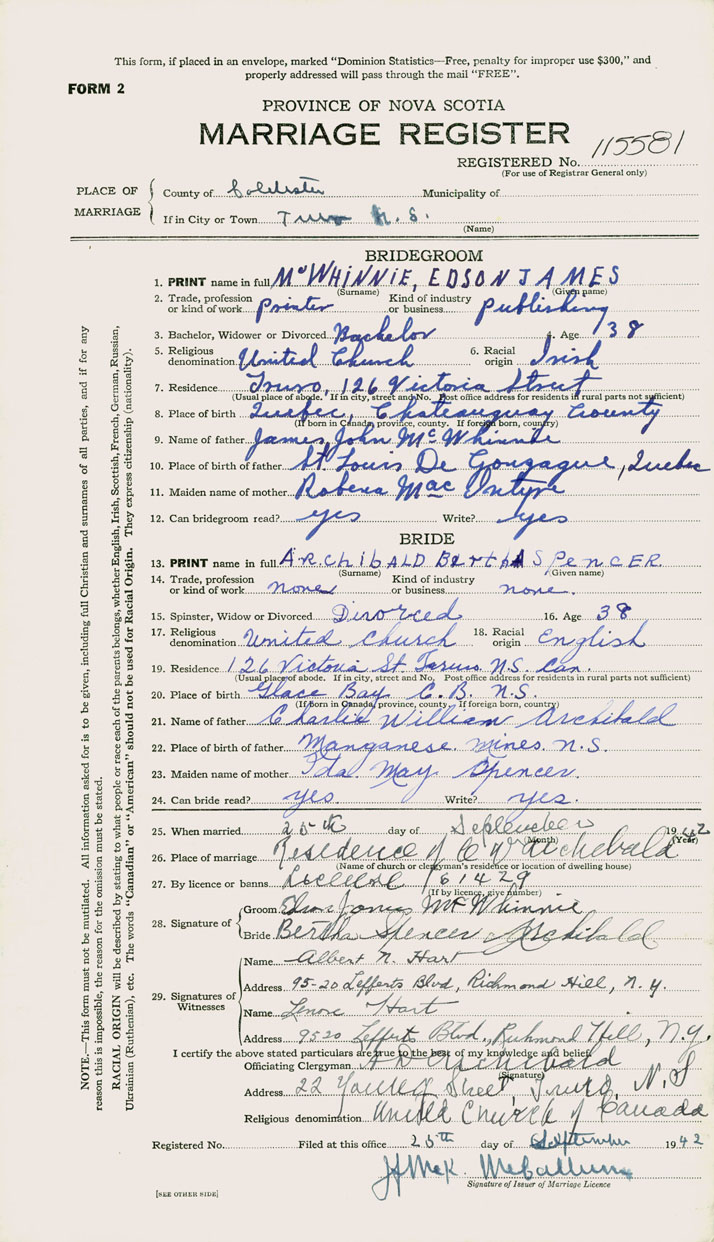 This form, if placed in an envelope, marked "Dominion Statistics—Free, penalty for improper use $300," and
properly addressed will pass through the mail "FREE".
FORM 2
PROVINCE OF NOVA SCOTIA
MARRIAGE REGISTER
REGISTERED No. 115581
(For use of Registrar General only)
PLACE OF MARRIAGE
County of Colchester Municipality of
If in City or Town Truro N.S.
(Name)
BRIDEGROOM
1. PRINT name in full McWHINNIE, EDSON JAMES
(Surname) (Given name)
2. Trade, profession or kind of work printer Kind of industry or business publishing
3. Bachelor, Widower or Divorced Bachelor 4. Age 38
5. Religious denomination United Church 6. Racial origin Irish
7. Residence Truro, 126 Victoria Street
(Usual place of abode. If in city, street and No. Post office address for residents in rural parts not sufficient)
8. Place of birth Quebec, Chateauguay County
(If born in Canada, province, county. If foreign born, country)
9. Name of father James John McWhinnie
10. Place of birth of father St. Louis De Gonzague, Quebec
11. Maiden name of mother Robena MacIntyre
12. Can bridegroom read? yes Write? yes
BRIDE
13. PRINT name in full ARchibALD BERthA SPENCER
(Surname) (Given name)
14. Trade, profession or kind of work none Kind of industry or business none.
15. Spinster, Widow or Divorced Divorced 16. Age 38
17. Religious denomination United Church 18. Racial origin English
19. Residence 126 Victoria St. Truro N.S. Can.
(Usual place of abode. If in city, street and No. Post office address for residents in rural parts not sufficient)
20. Place of birth Glace Bay C.B. N.S.
(If born in Canada, province, county. If foreign born, country)
21. Name of father Charlie William Archibald
22. Place of birth of father Manganese Mines. N.S.
23. Maiden name of mother Ida May Spencer.
24. Can bride read? yes. Write? yes.
25. When married 25th day of September 1942
(Month) (Year)
26. Place of marriage Residence of C W Archibald
(Name of church or clergyman's residence or location of dwelling house)
27. By licence or banns 61429
(If by licence, give number)
28. Signature of
Groom Edson James McWhinnie
Bride Bertha Spencer Archibald
29. Signatures of Witnesses
Name Albert N. Hart
Address 95-20 Lefferts Blvd, Richmond Hill, N.Y.
Name Lenore Hart
Address 9520 Lefferts Blvd., Richmond Hill, N.Y.
I certify the above stated particulars are true to the best of my knowledge and belief.
Officiating Clergyman A D Archibald
(Signature)
Address 22 Young Street, Truro, N.S
Religious denomination United Church of Canada
Registered No. Filed at this office 25th day of September 1942
McCallum
Signature of Issuer of Marriage Licence
[SEE OTHER SIDE]
NOTE.—This form must not be mutilated. All information asked for is to be given, including full Christian and surnames of all parties, and if for any
reason this is impossible, the reason for the omission must be stated.
RACIAL ORIGIN will be described by stating to what people or race each of the parents belongs, whether English, Irish, Scottish, French, German, Russian,
Ukrainian (Ruthenian), etc. The words "Canadian" or "American" should not be used for Racial Origin. They express citizenship (nationality).